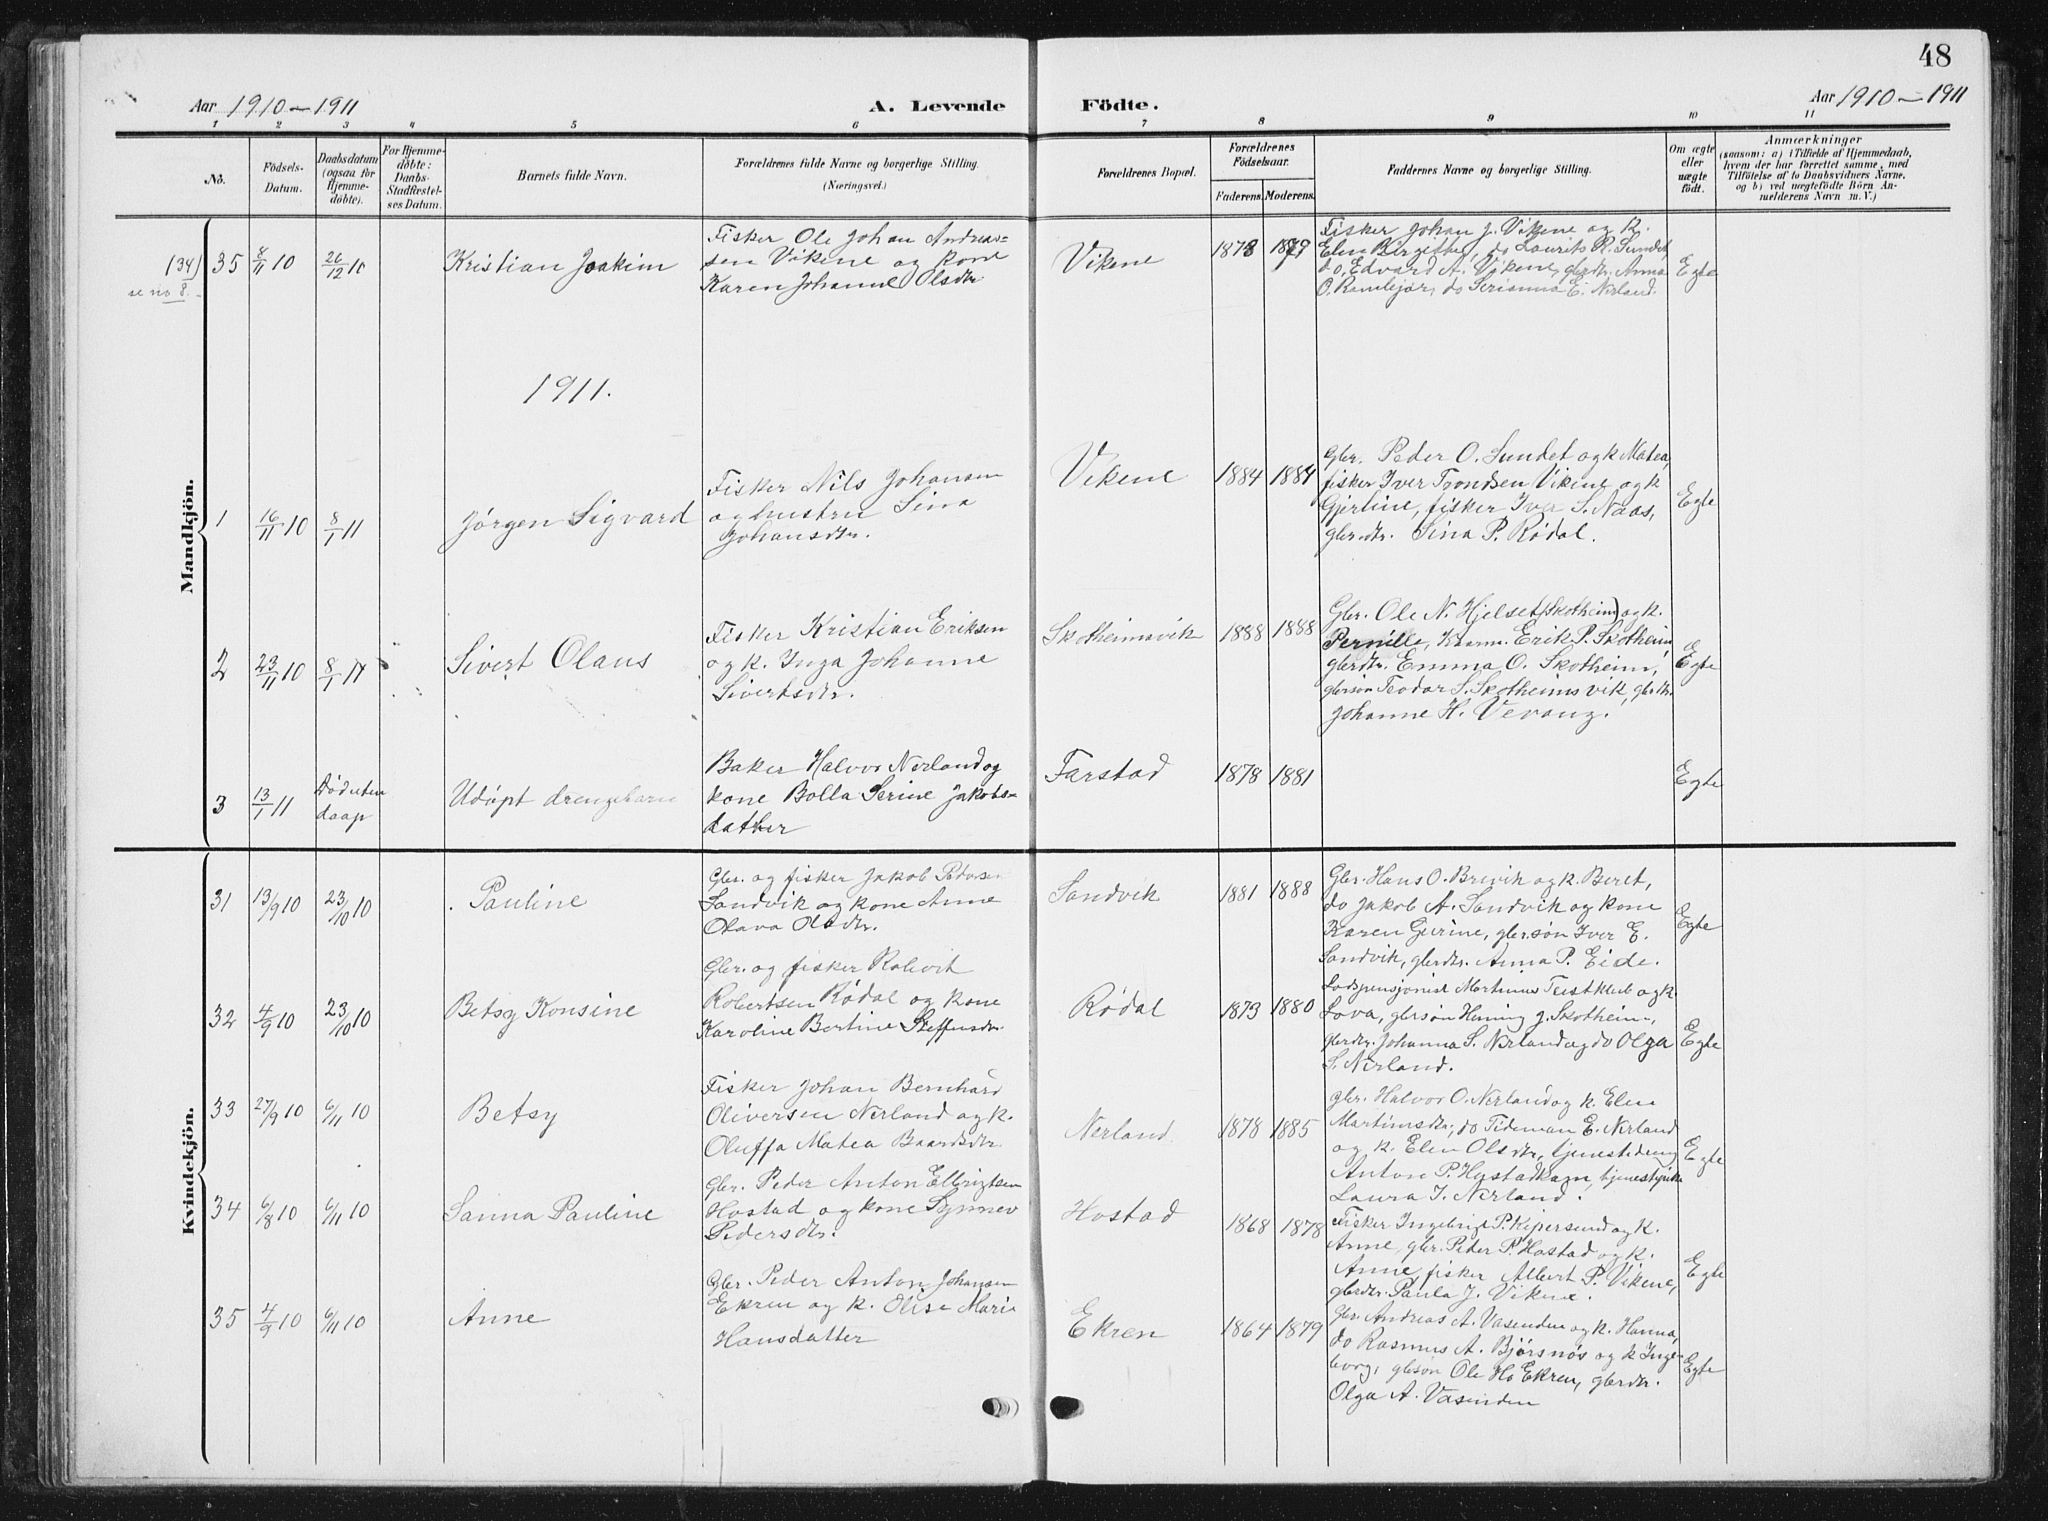 48
Aar 1910—1911
A. Levende
Födte.
Aar 1910—1911
1 2 3 4 5 6 7 8 9 10 11
No.
Födsels-
Datum.
Daabsdatum
(ogsaa for
Hjemme-
döbte).
For Hjemme-
döbte:
Daabs-
Stadfæstel-
ses Datum.
Barnets fulde Navn.
Forældrenes fulde Navne og borgerlige Stilling.
(Næringsvei.)
Forældrenes Bopæl.
Forældrenes
Födselsaar.
Faderens.
Moderens.
Faddernes Navne og borgerlige Stilling.
Om ægte
eller
uægte
födt.
Anmærkninger
(saasom: a) i Tilfælde af Hjemmedaab,
hvem der har forrettet samme, med
Tilföielse af to Daabsvidners Navne,
og b) ved uægtefödte Börn An-
melderens Navn m. V.)
Mandkjön.
(34)
se no 8.
35
8/11 10
26/12 10
Kristian Joakim
Fisker Ole Johan Andreas-
sen Vikene og kone
Karen Johanne Olsdtr
Vikene
1878
1879
Fisker Johan J. Vikene og k.
Elen Birgitte, do Laurits R. Sundet,
do, Edvard A. Vikene, glerdtr. Anna
O. do Serianna E. Nerland.
Egte
1911.
1
16/11 10
8/1 11
Jørgen Sigvard
Fisker Nils Johansen
og hustru Sina
Johansdtr.
Vikene
1884
1884
Gbr. Peder O. Sundet og k Matea,
fisker Iver Trondsen Vikene og k
Gjertine, fisker Iver S. Naas,
gbrdtr. Sina P. Rødal.
Egte
2
23/11 10
8/1 11
Sivert Olaus
Fisker Kristian Eriksen
og k. Inga Johanne
Sivertsdtr.
Skotheimsvik
1888
1888
Gbr. Ole N. Hjelset (Skotheim) og k.
Pernille, Kaarm. Erik P. Skotheim,
gbrdtr. Emma O. Skotheim,
gbrsøn Teodor S. Skotheimsvik, gbrdtr.
Johanne H. Vevang.
Egte
3
13/1 11
Død uten
daap
Udøpt drengebarn
Baker Halvor Nerland og
kone Bolla Serine Jakobs-
datter
Farstad
1878
1881
Egte
Kvindekjön.
31
13/9 10
23/10 10
Pauline
Gbr. og fisker Jakob Pedersen
Sandvik og kone Anne
Olava Olsdtr.
Sandvik
1881
1888
Gbr. Hans O. Brevik og k. Beret,
do Jakob A. Sandvik og kone
Karen Gurine, gbrsøn Iver E.
Sandvik, gbrdtr. Anna P. Eide.
Egte
32
4/9 10
23/10 10
Betsy Konsine
Gbr. og fisker Robert
Robertsen Rødal og kone
Karoline Bertine Steffensdtr.
Rødal
1873
1880
Lodspensjonist Martinus Teistklub og k.
Lova, gbrsøn Heming J. Skotheim,
gbrdtr. Johanna S. Nerland og do Olga
S. Nerland.
Egte
33
27/9 10
6/11 10
Betsy
Fisker Johan Bernhard
Oliversen Nerland og k.
Oluffa Matea Baardsdtr
Nerland
1878
1885
gbr. Halvor O. Nerland og k. Elen
Martinsdtr., do Tideman E. Nerland
og k. Elen Olsdtr, tjenestedreng
Anton P. Hostadhagn, tjenestpike
Laura I. Nerland.
Egte
34
6/8 10
6/11 10
Sanna Pauline
Gbr. Peder Anton Ellingsen
Hostad og kone Synnev
Pedersdtr.
Hostad
1868
1878
Fisker Ingebrigt P. Kipersund og k.
Anne, gbr. Peder P. Hostad og k.
Anne, fisker Albert P. Vikene,
gbrdtr. Paula J. Vikene.
Egte
35
4/9 10
6/11 10
Anne
Gbr. Peder Anton Johansen
Ekren og k. Olise Marie
Hansdatter
Ekren
1864
1879
Gbr. Andreas A. Vasenden og k. Hanna,
do Rasmus A. Bjørsnøs og k Inge-
borg, gbrsøn Ole Ekren, gbrdtr.
Olga A. Vasenden
Egte